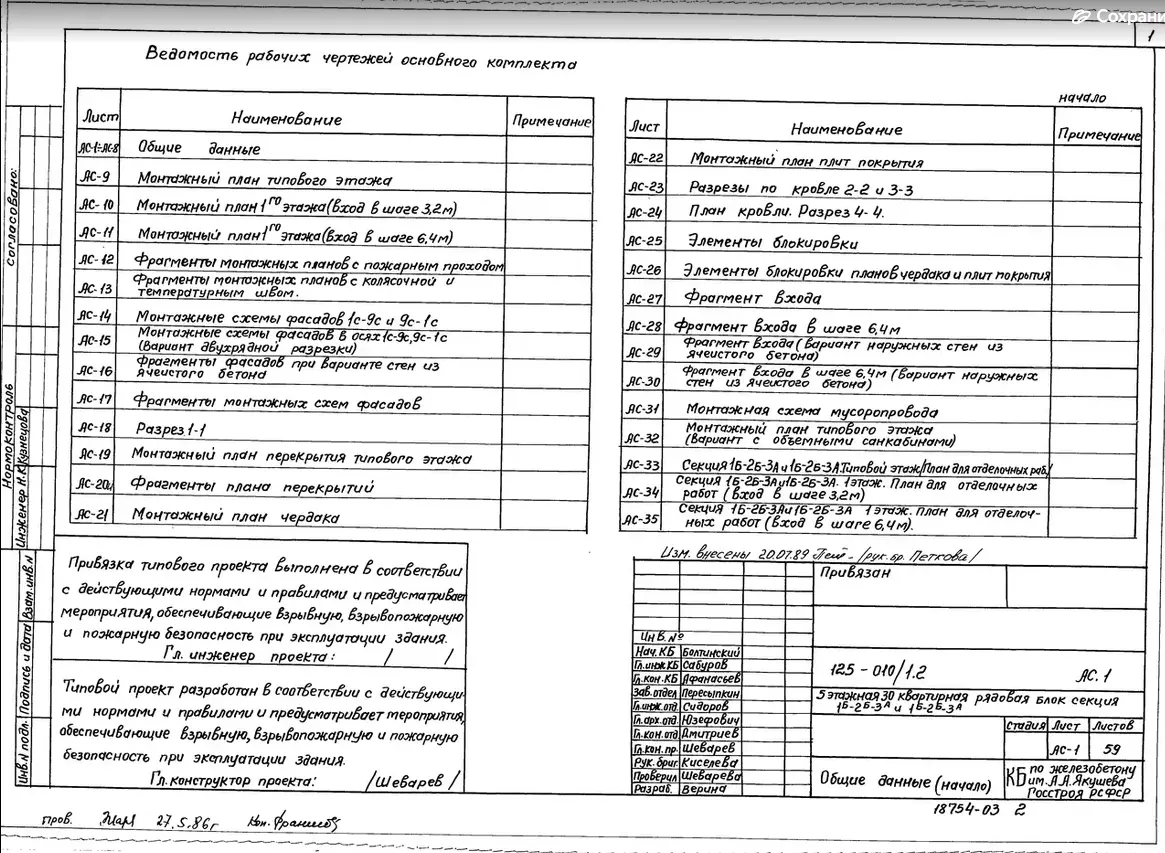 Сохрани
1
Ведомость рабочих чертежей основного комплекта
начало
Лист Наименование Примечание
АС-1÷АС-8 Общие данные
АС-9 Монтажный план типового этажа
АС-10 Монтажный план 1го этажа (Вход в шаге 3,2м)
АС-11 Монтажный план 1го этажа (Вход в шаге 6,4м)
АС-12 Фрагменты монтажных планов с пожарным проходом
АС-13 Фрагменты монтажных планов с колясочной и
температурным швом.
АС-14 Монтажные схемы фасадов 1с-9с и 9с-1с
АС-15 Монтажные схемы фасадов в осях 1с-9с, 9с-1с
(Вариант двухрядной разрезки)
АС-16 Фрагменты фасадов при варианте стен из
ячеистого бетона
АС-17 Фрагменты монтажных схем фасадов
АС-18 Разрез 1-1
АС-19 Монтажный план перекрытия типового этажа
АС-20и Фрагменты плана перекрытий
АС-21 Монтажный план чердака
Лист Наименование Примечание
АС-22 Монтажный план плит покрытия
АС-23 Разрезы по кровле 2-2 и 3-3
АС-24 План кровли. Разрез 4-4.
АС-25 Элементы блокировки
АС-26 Элементы блокировки планов чердака и плит покрытия
АС-27 Фрагмент входа
АС-28 Фрагмент входа в шаге 6,4м
АС-29 Фрагмент входа (Вариант наружных стен из
ячеистого бетона)
АС-30 Фрагмент входа в шаге 6,4м (Вариант наружных
стен из ячеистого бетона)
АС-31 Монтажная схема мусоропровода
АС-32 Монтажный план типового этажа
(Вариант с объемными санкабинами)
АС-33 Секция 1Б-2Б-3А и 1Б-2Б-3А. Типовой этаж /План для отделочных раб./
АС-34 Секция 1Б-2Б-3А и 1Б-2Б-3А. 1этаж. План для отделочных
работ (Вход в шаге 3,2м)
АС-35 Секция 1Б-2Б-3А и 1Б-2Б-3А 1 этаж. План для отделоч-
ных работ (Вход в шаге 6,4м).
Согласовано:
Нормоконтроль
Инженер Н.К. Кузнецова
Взам.инв.N
Подпись и дата
Инв.N подл.
Привязка типового проекта выполнена в соответствии
с действующими нормами и правилами и предусматривает
мероприятия, обеспечивающие взрывную, взрывопожарную
и пожарную безопасность при эксплуатации здания.
Гл. инженер проекта: / /
Типовой проект разработан в соответствии с действующи-
ми нормами и правилами и предусматривает мероприятия,
обеспечивающие взрывную, взрывопожарную и пожарную
безопасность при эксплуатации здания.
Гл. конструктор проекта: /Шеварев/
Изм. внесены 20.07.89 /рук.бр. Петкова/
Привязан
Инв.№
Нач. КБ Болтинский
Гл.инж.КБ Сабуров
Гл.кон.КБ Афанасьев
Зав.отдел Пересыпкин
Гл.инж.отд. Сидоров
Гл.арх.отд. Юзефович
Гл.кон.отд Дмитриев
Гл.кон.пр. Шеварев
Рук. бриг. Киселева
Проверил Шеварева
Разраб. Верина
125-010/1.2 АС.1
5 этажная 30 квартирная рядовая блок секция
1Б-2Б-3А и 1Б-2Б-3А
Стадия Лист Листов
АС-1 59
Общие данные (начало)
КБ по железобетону
им. А.А. Якушева
Госстроя РСФСР
18754-03 2
пров. 27.5.86г